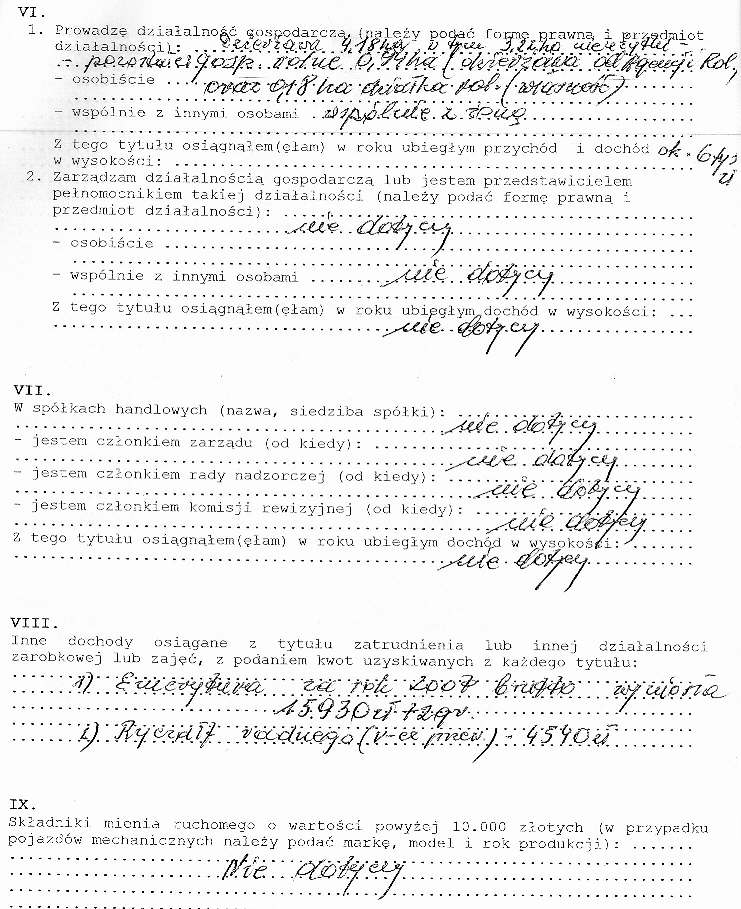 VI.
1. Prowadzę działalność gospodarczą (należy podać formę prawną i przedmiot
działalności): dzierżawa 4,18 ha, w tym 3,21 ha
gosp. rolne 0,97 ha (dzierżawa od Agencji Rol,
- osobiście ... oraz 0,18 ha działka rol. (własność)
- wspólnie z innymi osobami . wspólnie z żoną
Z tego tytułu osiągnąłem(ęłam) w roku ubiegłym przychód i dochód ok. 6 tys
w wysokości: zł
2. Zarządzam działalnością gospodarczą lub jestem przedstawicielem
pełnomocnikiem takiej działalności (należy podać formę prawną i
przedmiot działalności):
nie dotyczy
- osobiście
- wspólnie z innymi osobami nie dotyczy
Z tego tytułu osiągnąłem(ęłam) w roku ubiegłym dochód w wysokości: ...
nie dotyczy
VII.
W spółkach handlowych (nazwa, siedziba spółki):
nie dotyczy
- jestem członkiem zarządu (od kiedy):
nie dotyczy
- jestem członkiem rady nadzorczej (od kiedy):
nie dotyczy
- jestem członkiem komisji rewizyjnej (od kiedy):
nie dotyczy
Z tego tytułu osiągnąłem(ęłam) w roku ubiegłym dochód w wysokości:
nie dotyczy
VIII.
Inne dochody osiągane z tytułu zatrudnienia lub innej działalności
zarobkowej lub zajęć, z podaniem kwot uzyskiwanych z każdego tytułu:
1) Emerytura za rok 2007 brutto wyniosła
15.930 zł + 2 gr.
2) Ryczałt radnego (v-ce przew.) - 4540 zł
IX.
Składniki mienia ruchomego o wartości powyżej 10.000 złotych (w przypadku
pojazdów mechanicznych należy podać markę, model i rok produkcji):
Nie dotyczy